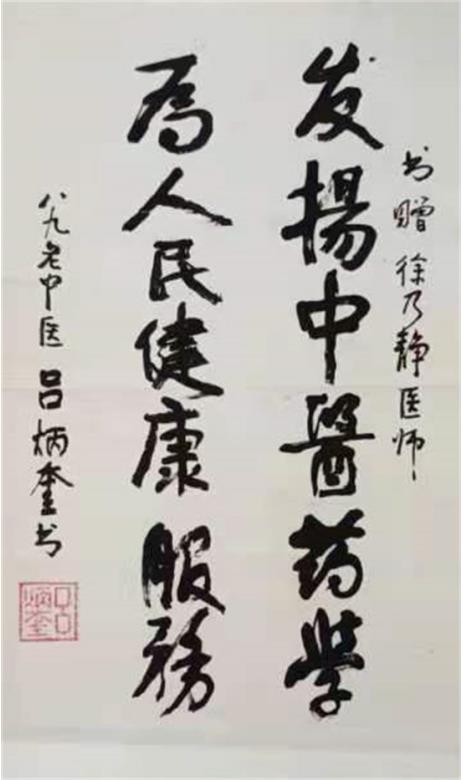 书赠徐乃静医师
发揚中醫药學
为人民健康服務
八九老中医吕炳奎书
吕炳奎